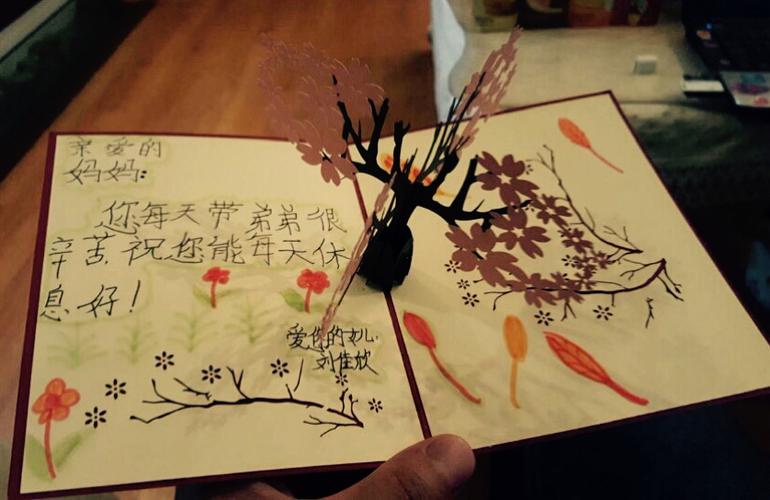 亲爱的
妈妈:
您每天带弟弟很
辛苦,祝您能每天休
息好!
爱你的女儿
刘佳欣